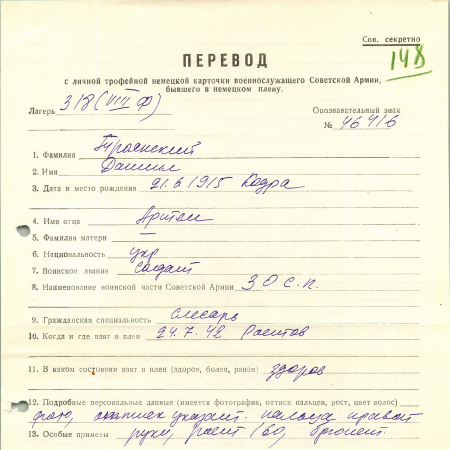 Сов. секретно
148
ПЕРЕВОД
с личной трофейной немецкой карточки военнослужащего Советской Армии,
бывшего в немецком плену.
Лагерь 318 (VIII Ф)
Опознавательный знак
№ 46416
1. Фамилия
2. Имя Даниил
3. Дата и место рождения 21.6.1915 Кодра
4. Имя отца Артем
5. Фамилия матери —
6. Национальность укр
7. Воинское звание солдат
8. Наименование воинской части Советской Армии 30 с.п.
9. Гражданская специальность слесарь
10. Когда и где взят в плен 24.7.42 Ростов
11. В каком состоянии взят в плен (здоров, болен, ранен) здоров
12. Подробные персональные данные (имеется фотография, оттиск пальцев, рост, цвет волос)
фото, оттиск указат. пальца правой
13. Особые приметы руки, рост 160, брюнет.